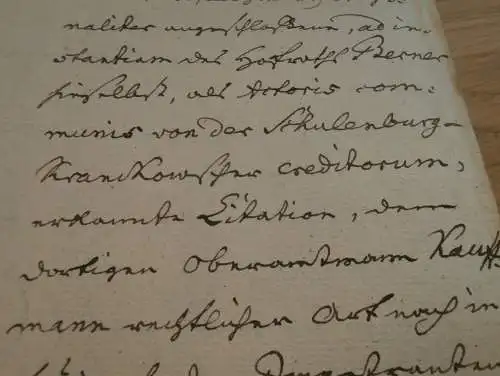 naliter angeschlossene, ad in-
stantiam des Hofraths Berner
hieselbst, als Actoris com-
munis von der Schulenburg-
Kranckowscher creditorum,
erkannte Citation, dem
dortigen Oberamtmann Kauff-
mann rechtlicher Art nach in-